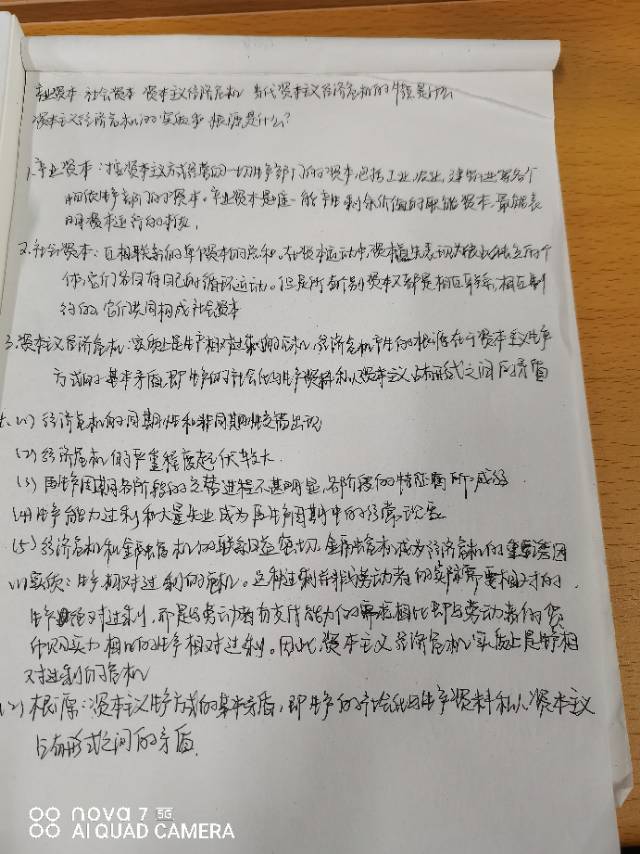 产业资本 社会资本 资本主义经济危机 当代资本主义经济危机的特征是什么
资本主义经济危机的实质和根源是什么?
1.产业资本:按资本主义方式经营的一切生产部门的资本,包括工业,农业,建筑业等各个
物质生产部门的资本。产业资本是唯一能产生剩余价值的职能资本,最能表
明资本运行的本质,
2.社会资本:互相联系的单个资本的总和,在资本运动中,资本首先表现为彼此独立的个
体,它们各自有自己的循环运动。但是所有个别资本又都是相互联系,相互制
约的,它们共同构成社会资本
3.资本主义经济危机:实质上是生产相对过剩的危机,经济危机产生的根源在于资本主义生产
方式的基本矛盾,即生产的社会化与生产资料私人资本主义占有形式之间的矛盾
(1)经济危机的周期性和非周期性交错出现
(2)经济危机的严重程度起伏较大
(3)再生产周期各阶段的交替进程不甚明显,各阶段的特征有所减弱
(4)生产能力过剩和大量失业成为再生产周期中的经常现象
(5)经济危机和金融危机的联系日益密切,金融危机成为经济危机的重要诱因
(1)实质:生产相对过剩的危机。这种过剩并非与劳动者的实际需要相对的
生产绝对过剩,而是与劳动者有支付能力的需求相比即与劳动者的货
币购买力相比的生产相对过剩。因此,资本主义经济危机实质上是生产相
对过剩的危机
(2)根源:资本主义生产方式的基本矛盾,即生产的社会化与生产资料私人资本主义
占有形式之间的矛盾.
nova 7 5G
AI QUAD CAMERA